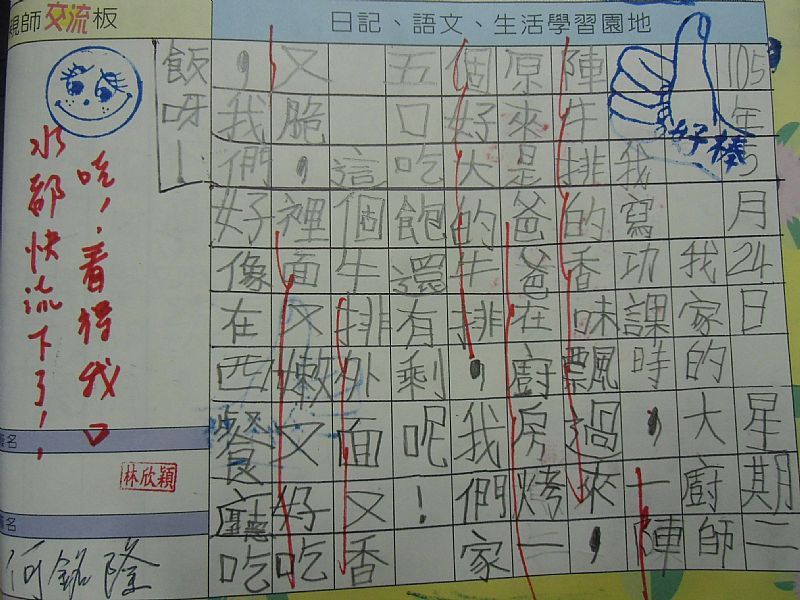 親師交流板
日記、語文、生活學習園地
105年5月24日星期二
我家的大廚師
我寫功課時，一陣
陣牛排的香味飄過來，
原來是爸爸在廚房烤一
個好大的牛排，我們家
五口吃飽還有剩呢！
這個牛排外面又香
又脆，裡面又嫩又好吃
，我們好像在西餐廳吃
飯呀！
好棒
看得我口
水都快流下了！
簽名
林欣穎
簽名
何銘隆